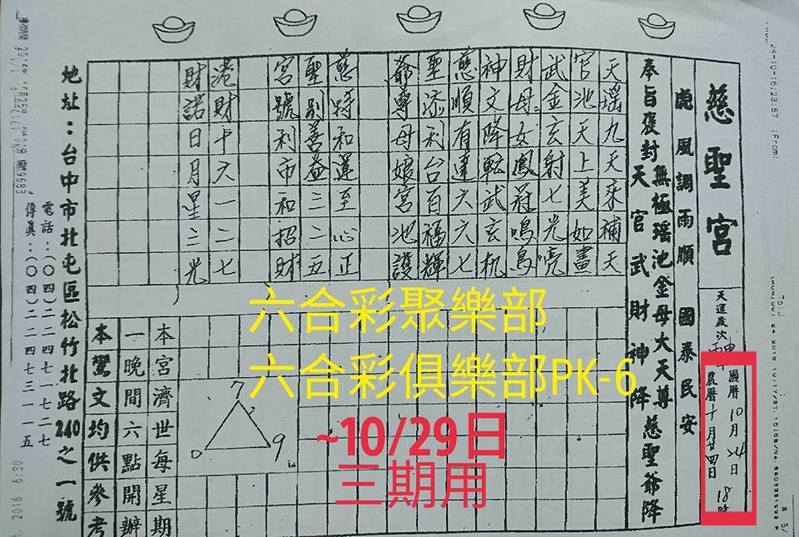 24-10-16;23:57 ;From:
慈聖宮
天運歲次
國曆10月24日 18時
農曆十月廿四日
風調雨順 國泰民安
無極瑤池金母大天尊
奉旨褒封 天官武財神降 慈聖爺降
天瑤九天來補天
官池天上美如畫
武金玄射七光亮
財母女鳳冠鳴鳥
神文降転武玄机
慈順有達六六七
聖添利台百福輝
爺尊母娘宮池護
慈特和運至心正
聖別善益三二五
宮號利市和招財
港財中六一二七
財諾日月星三光
六合彩聚樂部
六合彩俱樂部PK-6
~10/29日
三期用
7
0
9
本宮濟世每星期
一晚間六點開辦
本鸞文均供參考
電話：(〇四)二二四七一七二七
傳真：(〇四)二二四七三一一五
地址：台中市北屯區松竹北路240之一號
2016 6:30